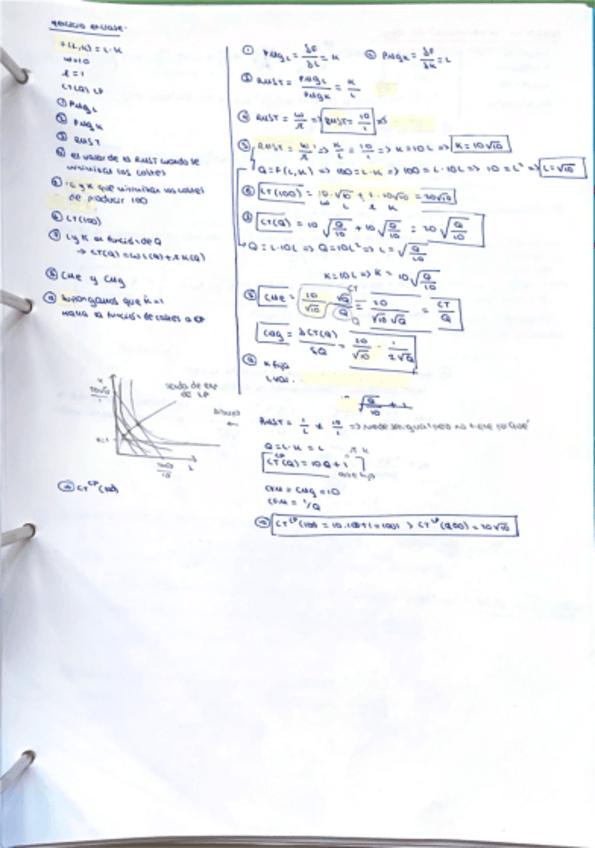 ejercicio en clase-
F(L,K) = L·K
w=10
r=1
CT(Q) LP
① PMgL
② PMgK
③ RMST
④ el valor de la RMST cuando se
minimizan los costes
⑤ L y K que minimizan los costes
de producir 100
⑥ CT(100)
⑦ L y K en función de Q
→ CT(Q) = wL(Q) + rK(Q)
⑧ CMe y CMg
⑨ Supongamos que K̄=1
senda de exp
de LP
L
⑩ CT^CP (100)
① PMgL = δF/δL = K ② PMgK = δF/δK = L
③ RMST = PMgL/PMgK = K/L
④ RMST = w/r => RMST = 10/1
⑤ RMST = w/r => K/L = 10/1 => K=10L => K=10√10
Q=F(L,K) => 100=L·K => 100=L·10L => 10=L² => L=√10
⑥ CT(100) = 10·√10 + 1·10√10 = 20√10
w L r K
⑦ CT(Q) = 10 √(Q/10) + 10 √(Q/10) = 20 √(Q/10)
Q=L·10L => Q=10L² => L=√(Q/10)
K=10L => K = 10√(Q/10)
⑧ CMe = 20/√10 √Q/Q = 20/(√10 √Q) = CT/Q
CMg = δCT(Q)/δQ = 20/√10 · 1/(2√Q)
⑨ K fijo
√(Q/10) + 1
RMST = 1/L ≠ 10/1
Q=L·K = L
CT^CP(Q) = 10Q+1
CMg = 10
= 1/Q
⑩ CT^CP(100) = 10·100+1=1001 > CT^LP(100) = 20√10